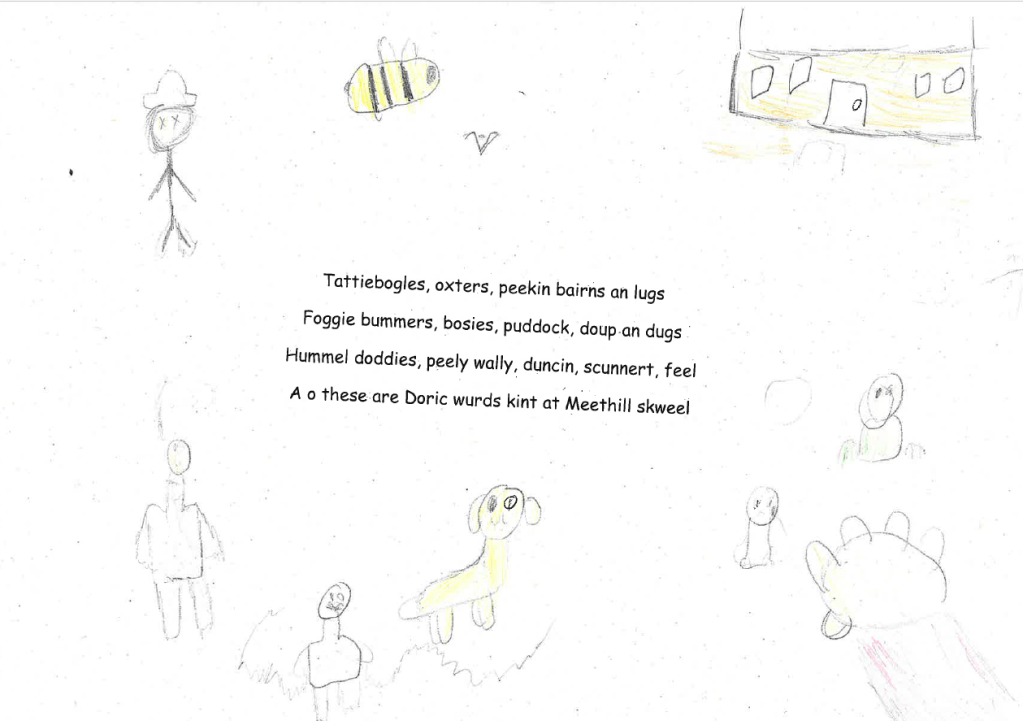 Tattiebogles, oxters, peekin bairns an lugs
Foggie bummers, bosies, puddock, doup an dugs
Hummel doddies, peely wally, duncin, scunnert, feel
A o these are Doric wurds kint at Meethill skweel